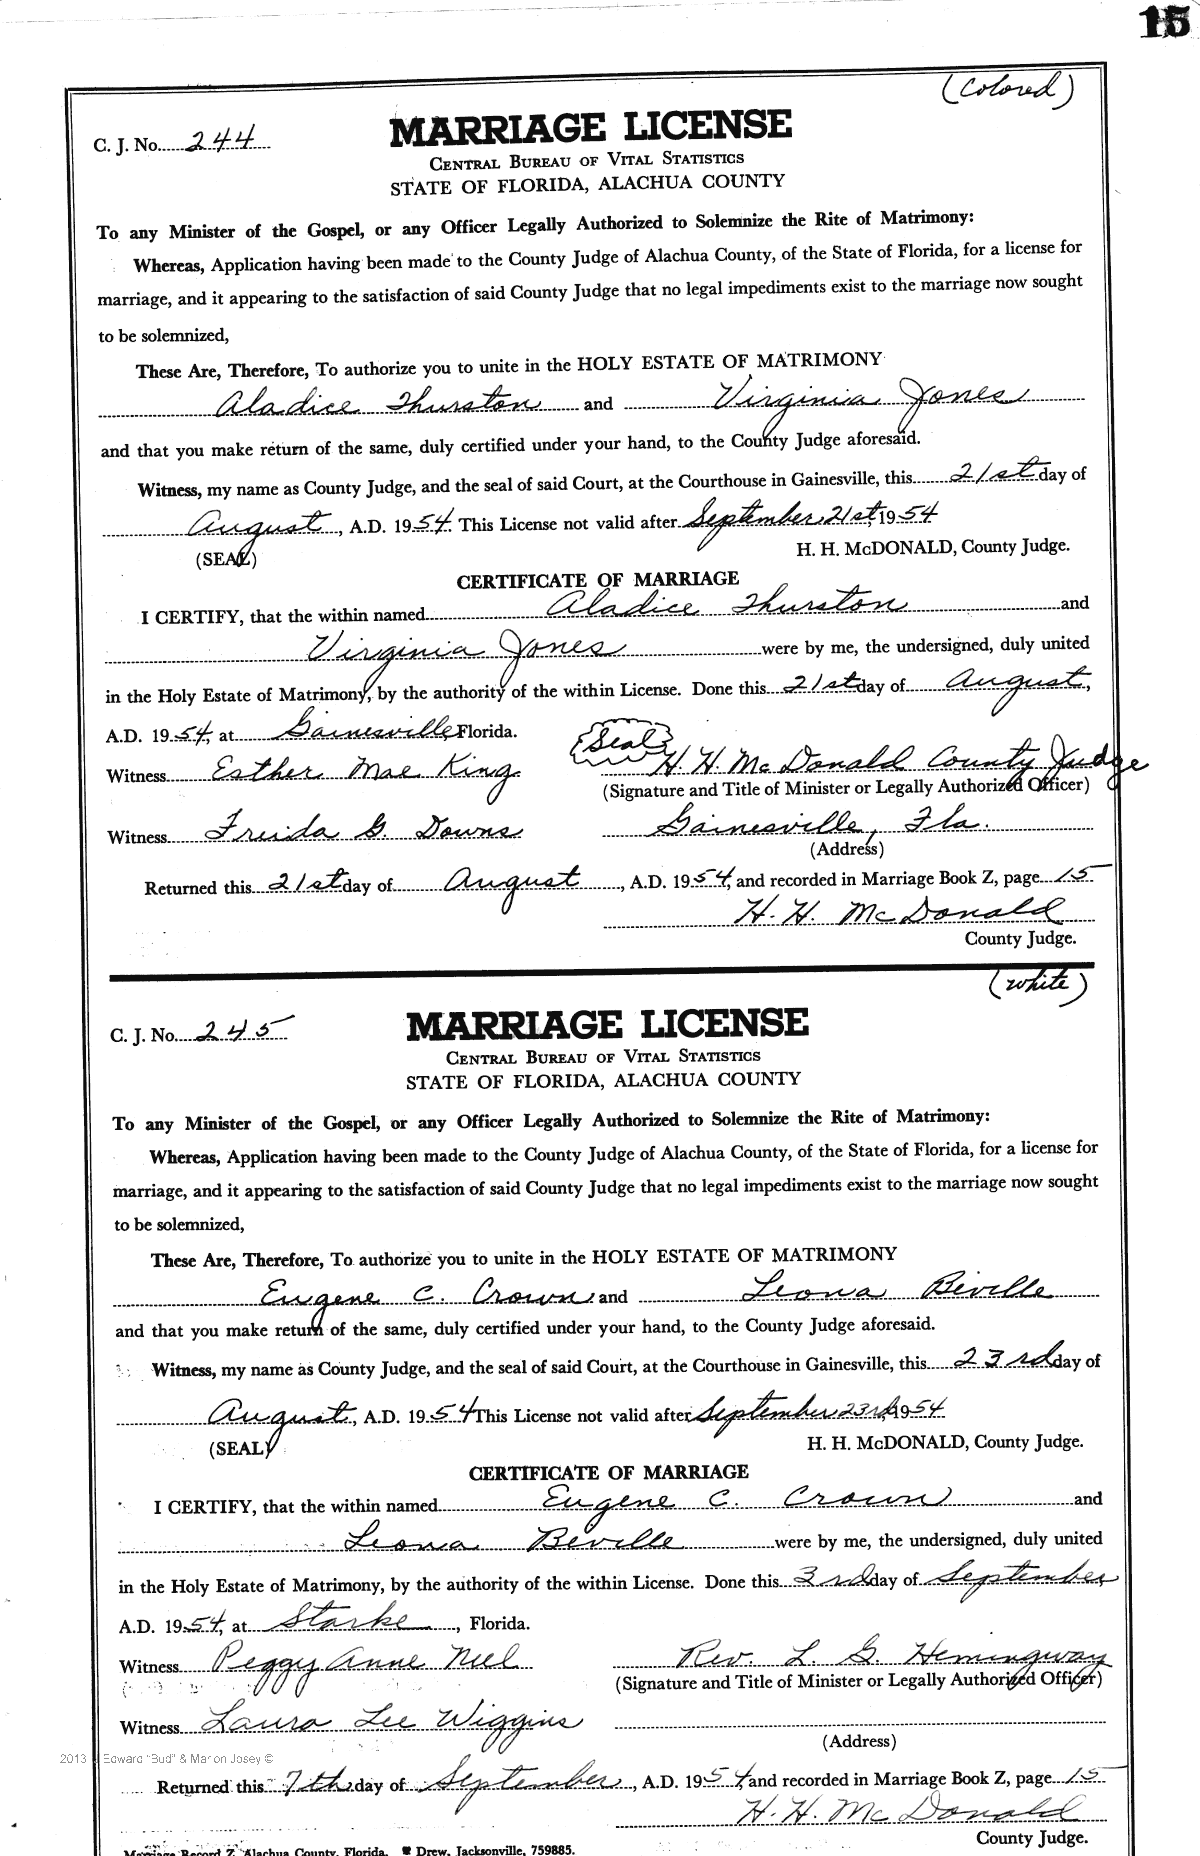 15
(Colored)
C. J. No. 244
MARRIAGE LICENSE
CENTRAL BUREAU OF VITAL STATISTICS
STATE OF FLORIDA, ALACHUA COUNTY
To any Minister of the Gospel, or any Officer Legally Authorized to Solemnize the Rite of Matrimony:
Whereas, Application having been made to the County Judge of Alachua County, of the State of Florida, for a license for
marriage, and it appearing to the satisfaction of said County Judge that no legal impediments exist to the marriage now sought
to be solemnized,
These Are, Therefore, To authorize you to unite in the HOLY ESTATE OF MATRIMONY
Aladice Thurston and Virginia Jones
and that you make return of the same, duly certified under your hand, to the County Judge aforesaid.
Witness, my name as County Judge, and the seal of said Court, at the Courthouse in Gainesville, this 21st day of
August, A.D. 1954. This License not valid after September 21st, 1954
(SEAL) H. H. McDONALD, County Judge.
CERTIFICATE OF MARRIAGE
I CERTIFY, that the within named Aladice Thurston and
Virginia Jones were by me, the undersigned, duly united
in the Holy Estate of Matrimony, by the authority of the within License. Done this 21st day of August,
A.D. 1954, at Gainesville, Florida. (Seal)
Witness Esther Mae King H. H. McDonald County Judge
(Signature and Title of Minister or Legally Authorized Officer)
Witness Freida G. Downs Gainesville, Fla.
(Address)
Returned this 21st day of August, A.D. 1954, and recorded in Marriage Book Z, page 15
H. H. McDonald
County Judge.
(white)
C. J. No. 245
MARRIAGE LICENSE
CENTRAL BUREAU OF VITAL STATISTICS
STATE OF FLORIDA, ALACHUA COUNTY
To any Minister of the Gospel, or any Officer Legally Authorized to Solemnize the Rite of Matrimony:
Whereas, Application having been made to the County Judge of Alachua County, of the State of Florida, for a license for
marriage, and it appearing to the satisfaction of said County Judge that no legal impediments exist to the marriage now sought
to be solemnized,
These Are, Therefore, To authorize you to unite in the HOLY ESTATE OF MATRIMONY
Eugene C. Crown and Leona Beville
and that you make return of the same, duly certified under your hand, to the County Judge aforesaid.
Witness, my name as County Judge, and the seal of said Court, at the Courthouse in Gainesville, this 23rd day of
August, A.D. 1954 This License not valid after September 23rd, 1954
(SEAL) H. H. McDONALD, County Judge.
CERTIFICATE OF MARRIAGE
I CERTIFY, that the within named Eugene C. Crown and
Leona Beville were by me, the undersigned, duly united
in the Holy Estate of Matrimony, by the authority of the within License. Done this 3rd day of September
A.D. 1954, at Starke, Florida.
Witness Peggy Anne Neel Rev. L. G. Hemingway
(Signature and Title of Minister or Legally Authorized Officer)
Witness Laura Lee Wiggins
(Address)
2013 Edward "Bud" & Marion Josey ©
Returned this 7th day of September, A.D. 1954, and recorded in Marriage Book Z, page 15
H. H. McDonald
County Judge.
Marriage Record Z, Alachua County, Florida. Drew, Jacksonville, 759885.